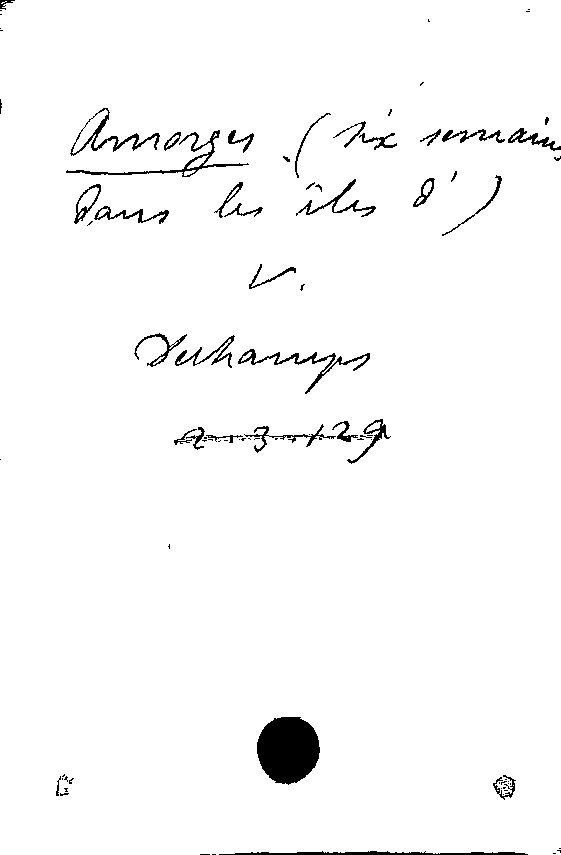 Amorges. (Six semaines
dans les îles d')
V.
Deschamps
2.3.129